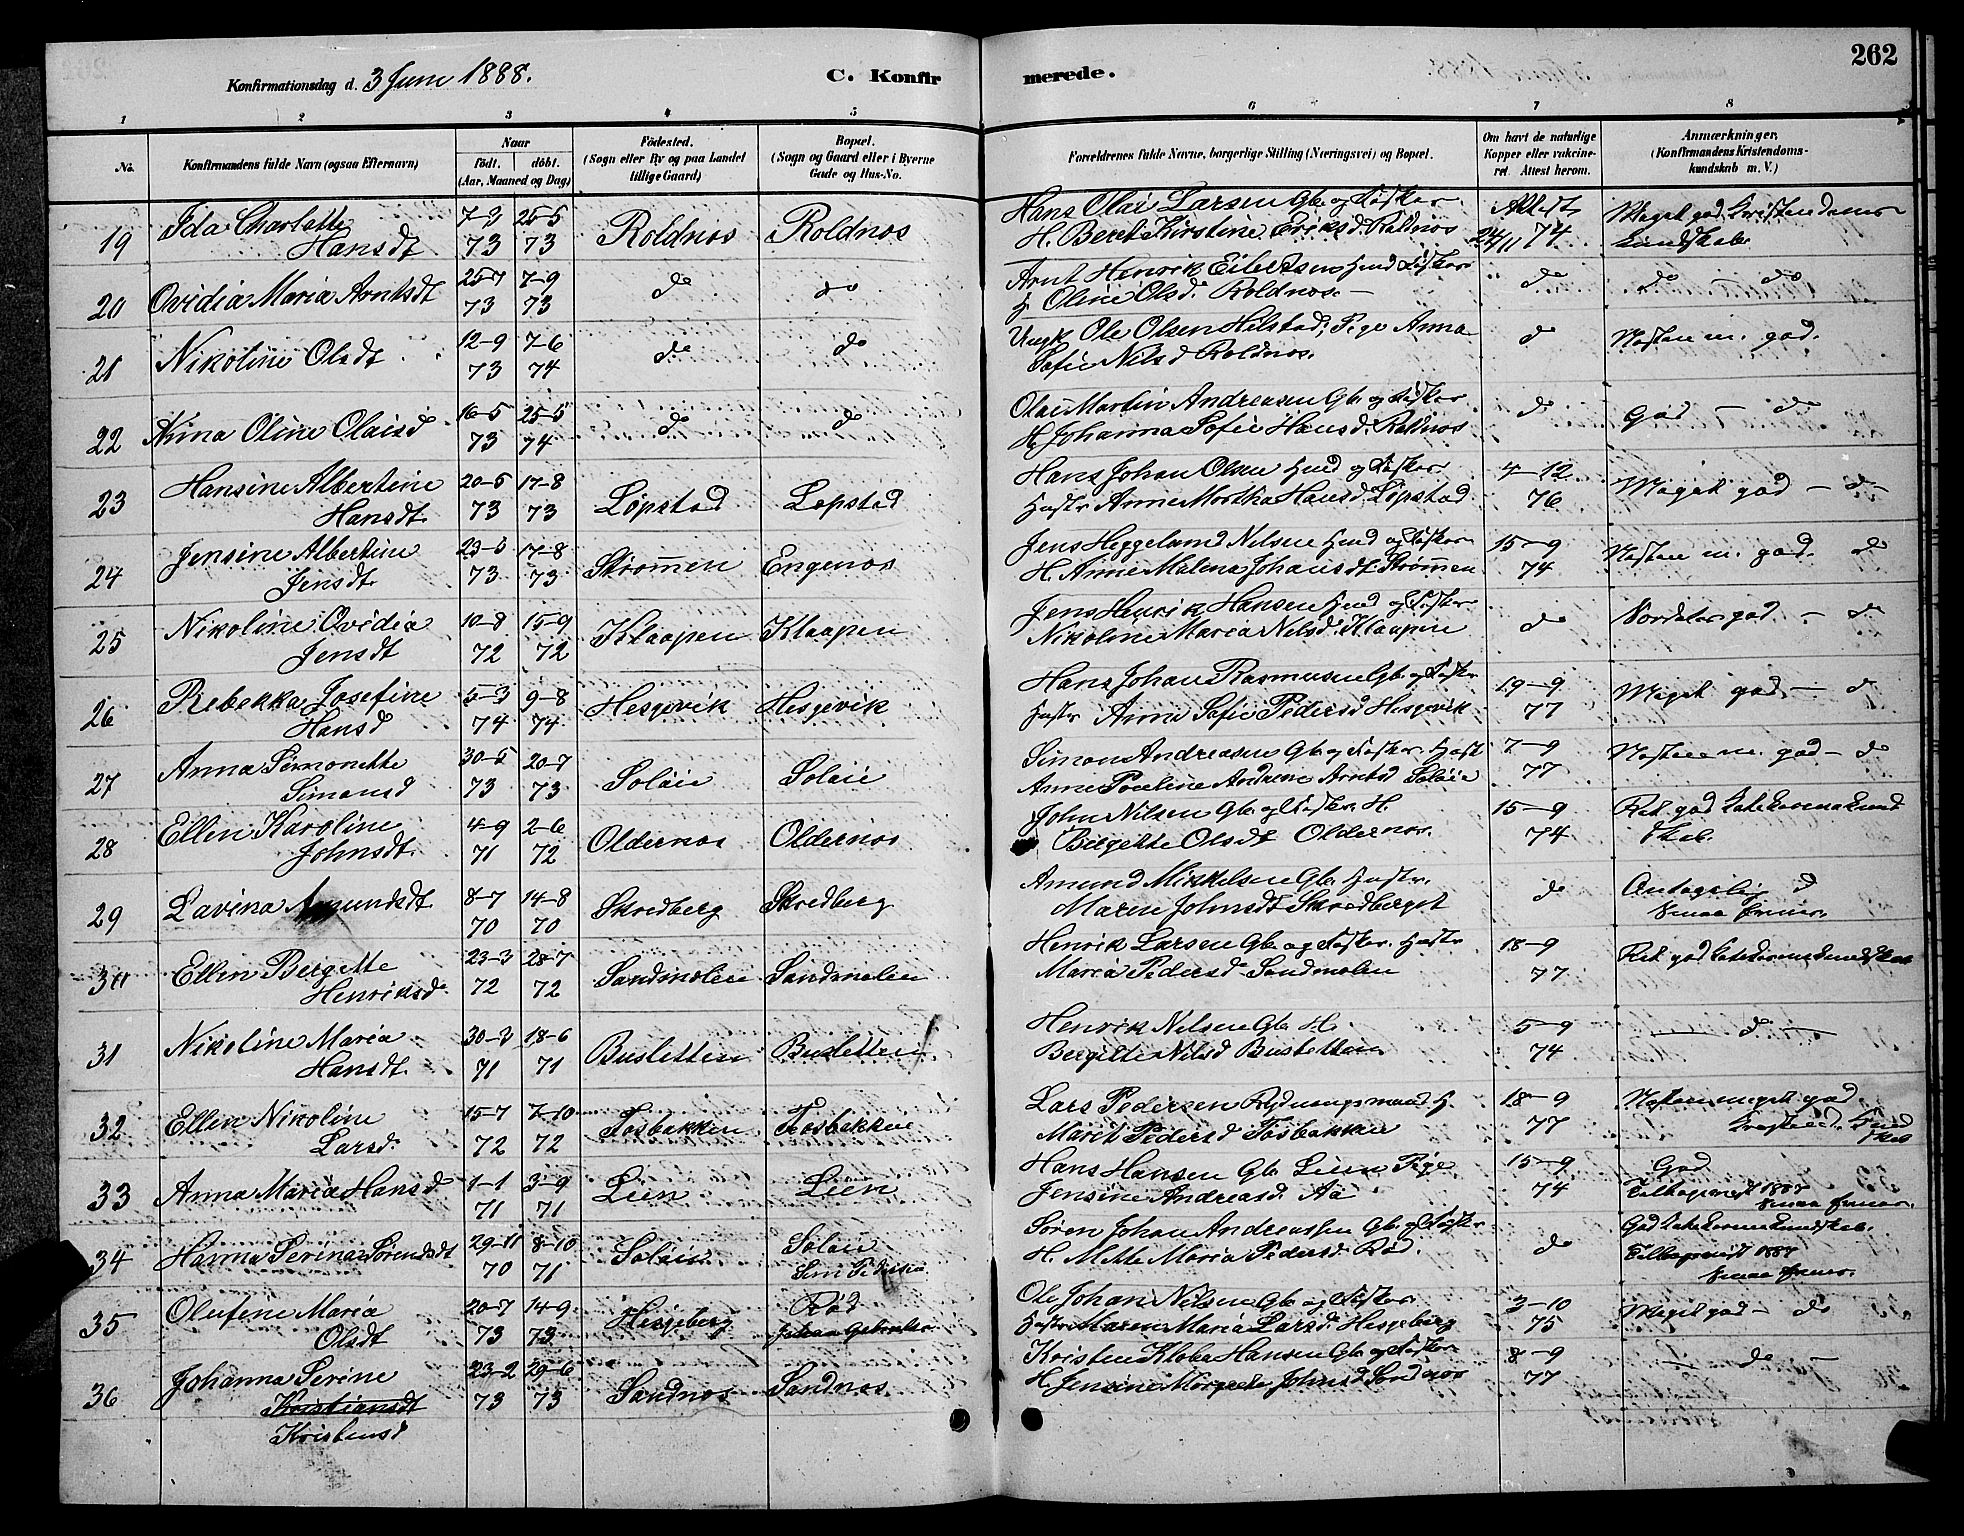 262
Konfirmationsdag d. 3 Juni 1888.
C. Konfirmerede.
1 2 3 4 5 6 7 8
No.
Konfirmandens fulde Navn (ogsaa Efternavn)
Naar
födt. döbt.
(Aar, Maaned og Dag)
Födested.
(Sogn eller By og paa Landet
tillige Gaard)
Bopæl.
(Sogn og Gaard eller i Byerne
Gade og Hus-No.
Forældrenes fulde Navne, borgerlige Stilling (Næringsvei) og Bopæl.
Om havt de naturlige
Kopper eller vakcine-
ret. Attest herom.
Anmærkninger,
(Konfirmandens Kristendoms-
kundskab m. V.)
19 Ida Charlotte 7-2 25-5 Roldnos Roldnos Hans Olai Larsen Gb og Fisker Attest Meget god Kristendoms-
Hansdt 73 73 H. Beret Kirstine Eriksd. Roldnos 24/11 74 kundskab
20 Ovidia Maria Arntsdt 25-7 7-9 do do Arnt Henrik Eilertsen Husmd Fisker do do - do
73 73 H. Oline Olsd. Roldnos. -
21 Nikoline Olsdt 12-9 7-6 do do Ungk Ole Olsen Hilstad, Pige Anna do Næsten m. god.
73 74 Sofie Nilsd Roldnos.
22 Anna Oline Olaisd 16-5 25-5 do do Olai Martin Andreasen Gb og Fisker do God - do
73 74 H. Johanna Sofie Hansd. Roldnos
23 Hansine Albertine 20-5 17-8 Løpstad Løpstad Hans Johan Olsen Husmd og Fisker 4-12 Meget god - do
Hansdt 73 73 Hustr Anne Martha Hansd. Løpstad 76
24 Jensine Albertine 17-8 Strømmen Engenos Jens Heggelund Nilsen Husmd og Fisker 15-9 Næsten m. god. do
Jensdt 73 73 H. Anne Malena Johansdt Strømmen 74
25 Nikoline Ovidia 10-8 15-9 Klaapen Klaapen Jens Henrik Hansen Husmd og Fisker do god - do
Jensdt 72 72 Nikoline Maria Nilsd. Klaapen
26 Rebekka Josefine 5-3 9-8 Hesjevik Hesjevik Hans Johan Rasmussen Gb og Fisker 19-9 Meget god - do
Hansd 74 74 Hustr Anne Sofie Pedersd Hesjevik 77
27 Anna Simonette 30-5 20-7 Soleie Soleie Simon Andreasen Gb og Fisker. Hust 7-9 Næsten m. god - do
Simonsd 73 73 Anne Pauline Andrene Arntsd Soleie 77
28 Ellen Karoline 4-9 2-6 Oldernos Oldernos John Nilsen Gb og Fisker. H. 15-9 Ret god Katekismekund
Johnsdt 71 72 Bergitte Olsdt Oldernos. 74 skab.
29 Lavina Amundsdt 8-7 14-8 Skredberg Skredberg Amund Mikkelsen Gb. Hustr. do Antagelig d
70 70 Maren Johnsdt Skredberget
30 Ellen Bergette 23-3 28-7 Sandmolen Sandmolen Henrik Larsen Gb og Fisker. Hustr 18-9 Ret god Katekismekundskab
Henriksd. 72 72 Maria Pedersd Sandmolen 77
31 Nikoline Maria 18-6 Busletten Busletten Henrik Nilsen Gb. H. 5-9 - d -
Hansdt. 71 71 Bergitte Nilsd Busletten 74
32 Ellen Nikoline 15-7 7-10 Fosbakken Fosbakken Lars Pedersen Rydningsmand H. 18-9 Næsten meget god
Larsd. 72 72 Marit Pedersd Fosbakken 77 Kristend. Kund
skab
33 Anna Maria Hansd 1-1 3-9 Lien Lien Hans Hansen Gb Lien Pige 15-9 God
71 71 Jensine Andreasd. Aa 74 Tilbagevist 1887
34 Hanna Serina Sørensdt 29-11 8-10 Soleie Soleie Søren Johan Andreassen Gb og Fisker do God Katekismekundskab.
70 71 H. Mette Maria Pedersd. Rød. Tilbagevist 1887
35 Olufine Maria 20-7 14-9 Hesjeberg Rød Ole Johan Nilsen Gb og Fisker 3-10 Meget god - do
Olsdt 73 73 Hustr Maren Maria Larsd. Hesjeberg 75
36 Johanna Serine 23-2 29-6 Sandnos Sandnos Kristen Hansen Gb og Fisker 8-9 - do -
Kristiansdt 73 73 H. Jensine Johnsd Sandnos 77
Kristensd